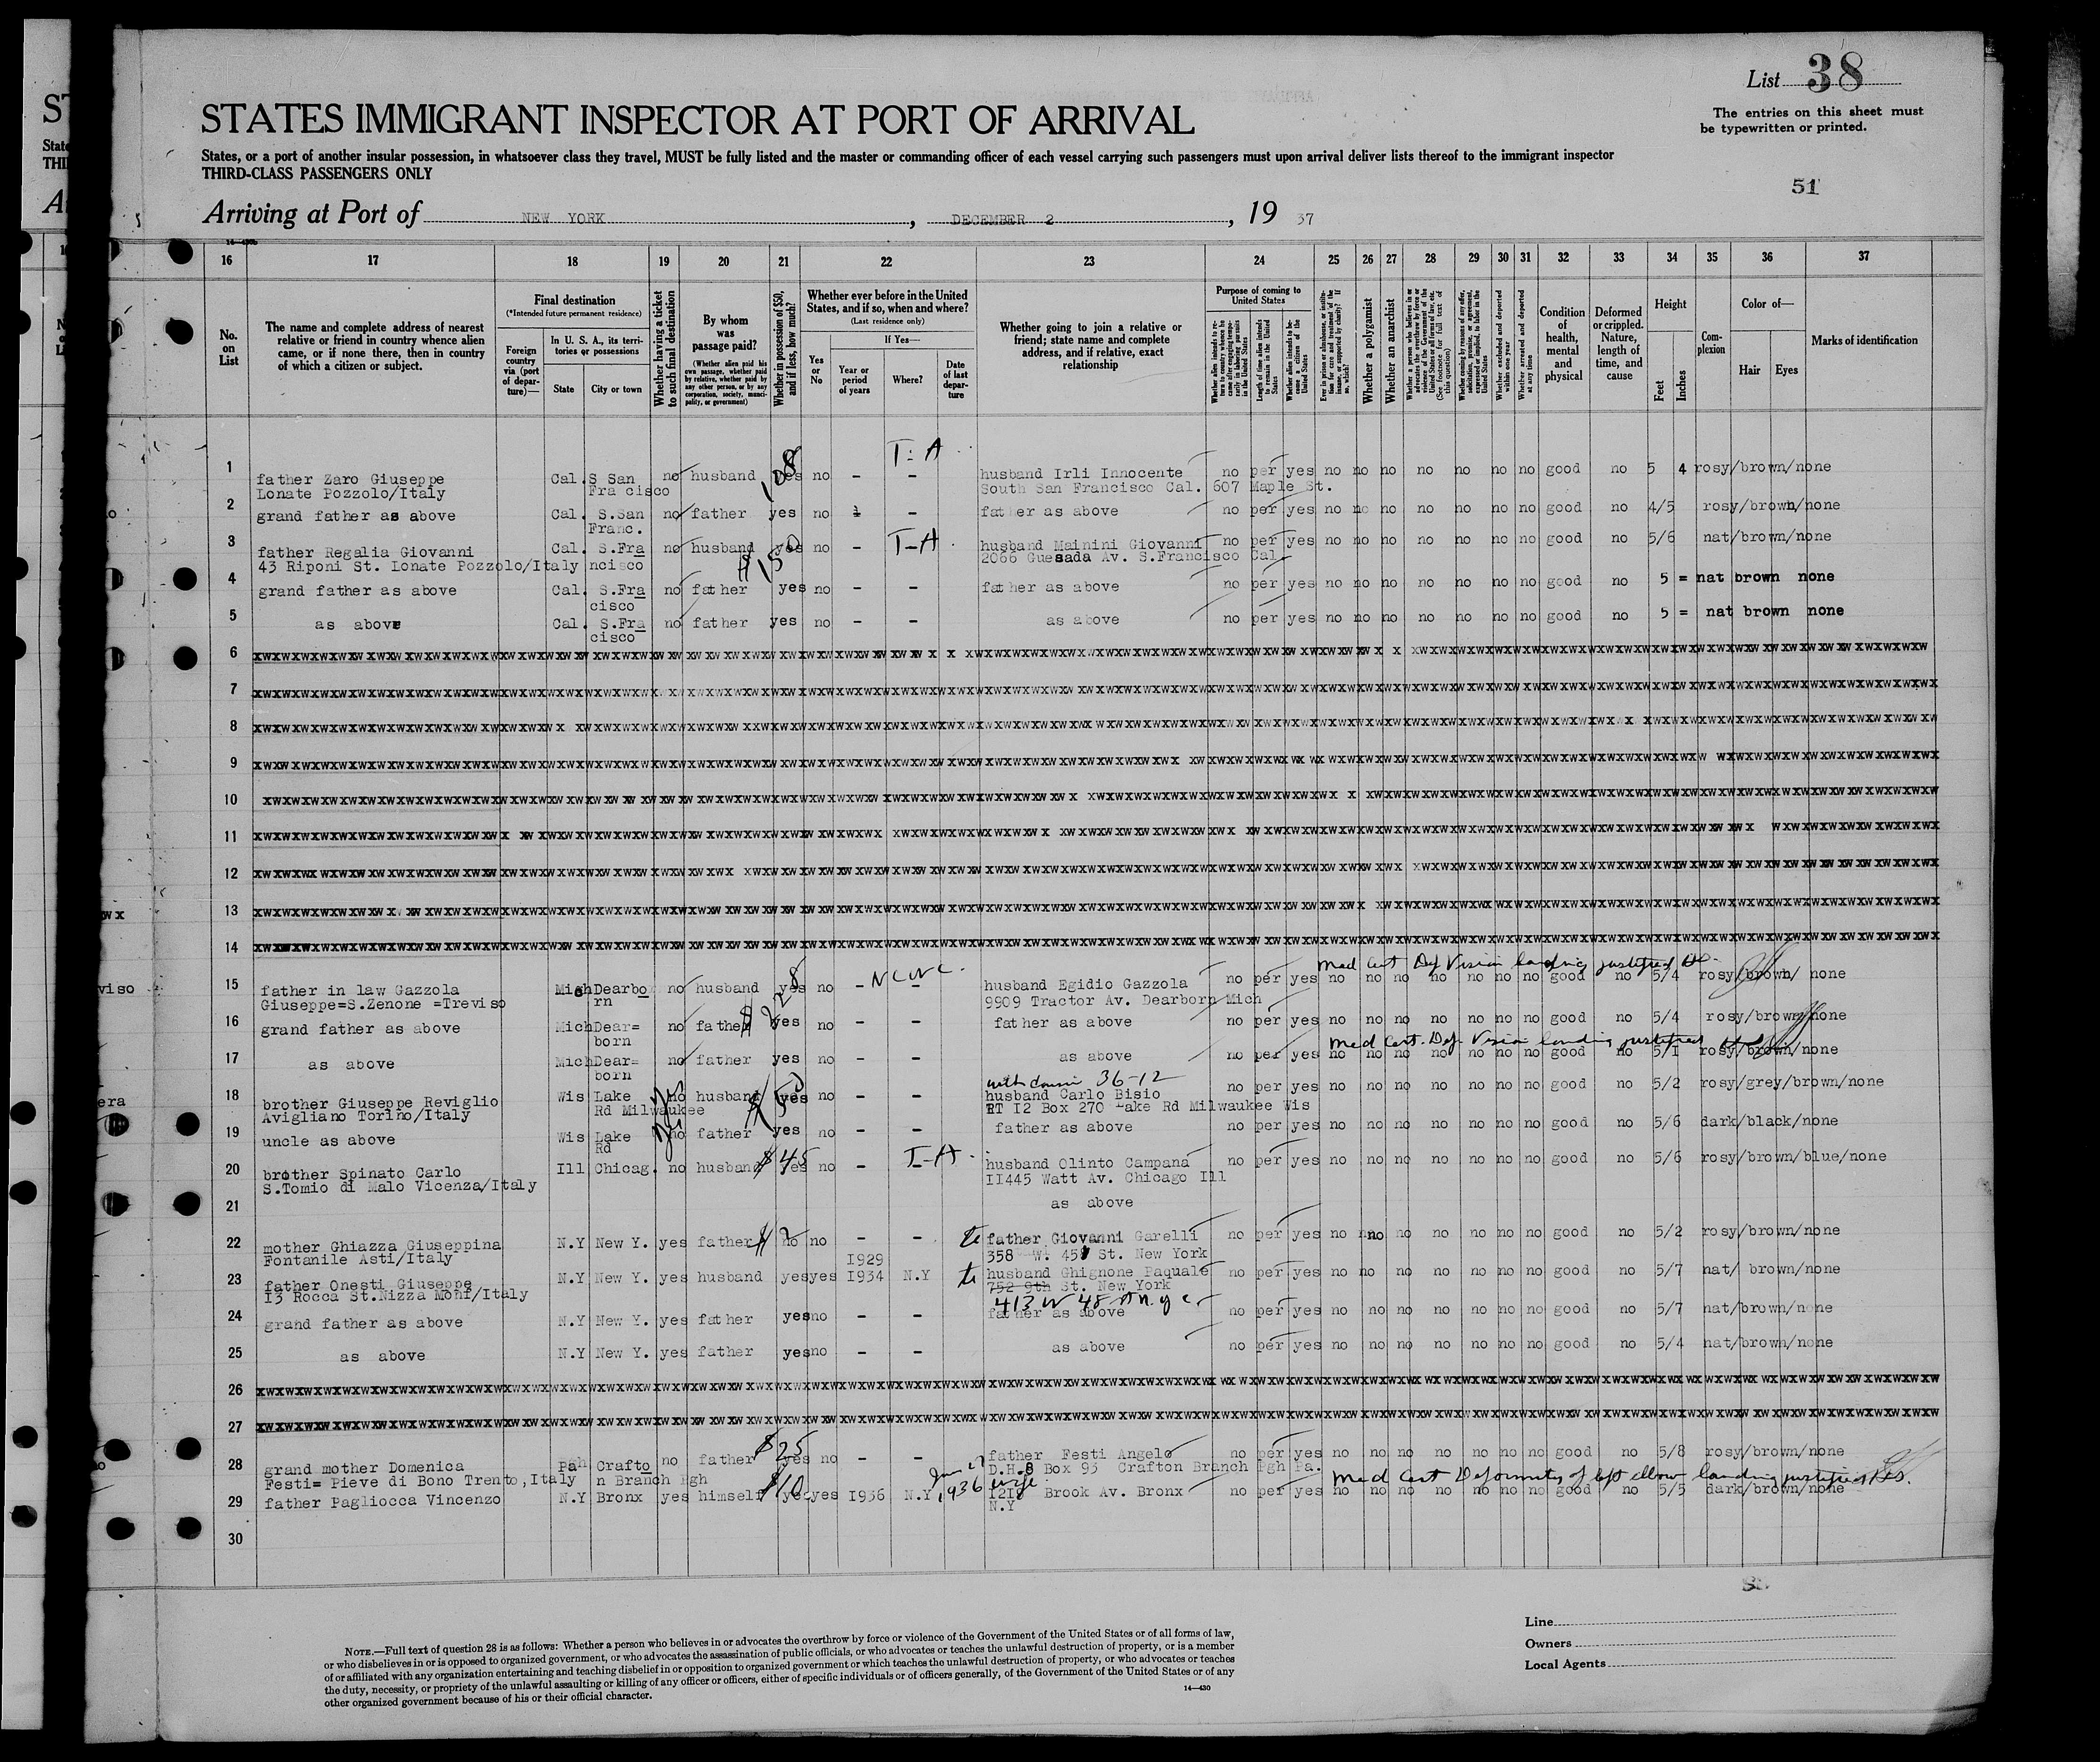 List 38
The entries on this sheet must
be typewritten or printed.
STATES IMMIGRANT INSPECTOR AT PORT OF ARRIVAL
States, or a port of another insular possession, in whatsoever class they travel, MUST be fully listed and the master or commanding officer of each vessel carrying such passengers must upon arrival deliver lists thereof to the immigrant inspector
THIRD-CLASS PASSENGERS ONLY
51
Arriving at Port of NEW YORK, DECEMBER 2, 19 37
16 17 18 19 20 21 22 23 24 25 26 27 28 29 30 31 32 33 34 35 36 37
No. on List
The name and complete address of nearest relative or friend in country whence alien came, or if none there, then in country of which a citizen or subject.
Final destination
(*Intended future permanent residence)
Foreign country via (port of departure)—
In U. S. A., its territories or possessions
State
City or town
Whether having a ticket to such final destination
By whom was passage paid?
(Whether alien paid his own passage, whether paid by relative, whether paid by any other person, or by any corporation, society, municipality, or government)
Whether in possession of $50, and if less, how much?
Whether ever before in the United States, and if so, when and where?
(Last residence only)
Yes or No
If Yes—
Year or period of years
Where?
Date of last departure
Whether going to join a relative or friend; state name and complete address, and if relative, exact relationship
Purpose of coming to United States
Length of time alien intends to remain in the United States
Whether alien intends to become a citizen of the United States
Whether a polygamist
Whether an anarchist
Whether excluded and deported within one year
Whether arrested and deported at any time
Condition of health, mental and physical
Deformed or crippled. Nature, length of time, and cause
Height
Feet
Inches
Complexion
Color of—
Hair
Eyes
Marks of identification
T-A
1 father Zaro Giuseppe Cal. S San no husband yes no - - husband Irli Innocente no per yes no no no no no no no good no 5 4 rosy/brown/none
Lonate Pozzolo/Italy Fra cisco South San Francisco Cal. 607 Maple St.
2 grand father as above Cal. S.San no father yes no - father as above no per yes no no no no no no no good no 4/5 rosy/brown/none
Franc.
3 father Regalia Giovanni Cal. S.Fra no husband yes no - T-A husband Mainini Giovanni no per yes no no no no no no no good no 5/6 nat/brown/none
43 Riponi St. Lonate Pozzolo/Italy ncisco $150 2066 Guesada Av. S.Francisco Cal
4 grand father as above Cal. S.Fra no father yes no - - father as above no per yes no no no no no no no good no 5 = nat brown none
cisco
5 as above Cal. S.Fra no father yes no - - as above no per yes no no no no no no no good no 5 = nat brown none
cisco
6
7
8
9
10
11
12
13
14
Med Cert Def Vision landing justified
15 father in law Gazzola Mich Dearbo no husband yes no - - husband Egidio Gazzola no per yes no no no no no no no good no 5/4 rosy/brown/ none
Giuseppe=S.Zenone =Treviso rn 9909 Tractor Av. Dearborn Mich
16 grand father as above Mich Dear= no father yes no - - father as above no per yes no no no no no no no good no 5/4 rosy/brown/none
born
Med Cert. Def. Vision landing justified
17 as above Mich Dear= no father yes no - - as above no per yes no no no no no no no good no 5/1 rosy/brown/none
born
36-12
18 brother Giuseppe Reviglio Wis Lake no husband yes no - - husband Carlo Bisio no per yes no no no no no no no good no 5/2 rosy/grey/brown/none
Avigliano Torino/Italy Rd Milwaukee RT I2 Box 270 Lake Rd Milwaukee Wis
19 uncle as above Wis Lake no father yes no - - father as above no per yes no no no no no no no good no 5/6 dark/black/none
Rd
20 brother Spinato Carlo Ill Chicag. no husband $45 yes no - T-A husband Olinto Campana no per yes no no no no no no no good no 5/6 rosy/brown/blue/none
S.Tomio di Malo Vicenza/Italy II445 Watt Av. Chicago Ill
21 as above
22 mother Ghiazza Giuseppina N.Y New Y. yes father no no - - father Giovanni Garelli no per yes no no no no no no no good no 5/2 rosy/brown/none
Fontanile Asti/Italy I929 358 W. 45 St. New York
23 father Onesti Giuseppe N.Y New Y. yes husband yes yes I934 N.Y husband Ghignone Paquale no per yes no no no no no no no good no 5/7 nat/ brown/none
I3 Rocca St.Nizza Monf/Italy 752 9th St. New York
413 W 48 St n.y c.
24 grand father as above N.Y New Y. yes father yes no - - father as above no per yes no no no no no no no good no 5/7 nat/brown/none
25 as above N.Y New Y. yes father yes no - - as above no per yes no no no no no no no good no 5/4 nat/brown/none
26
27
28 grand mother Domenica Pah Crafto no father $25 yes no - - father Festi Angelo no per yes no no no no no no no good no 5/8 rosy/brown/none
Festi= Pieve di Bono Trento,Italy n Branch Pgh D.H.8 Box 93 Crafton Branch Pgh Pa.
Med Cert Deformity of left elbow landing justified
29 father Pagliocca Vincenzo N.Y Bronx yes himself $10 yes yes I936 N.Y 1936 Brook Av. Bronx no per yes no no no no no no no good no 5/5 dark/brown/none
N.Y
30
Line
Owners
Local Agents
NOTE.—Full text of question 28 is as follows: Whether a person who believes in or advocates the overthrow by force or violence of the Government of the United States or of all forms of law,
or who disbelieves in or is opposed to organized government, or who advocates the assassination of public officials, or who advocates or teaches the unlawful destruction of property, or is a member
of or affiliated with any organization entertaining and teaching disbelief in or opposition to organized government or which teaches the unlawful destruction of property, or who advocates or teaches
the duty, necessity, or propriety of the unlawful assaulting or killing of any officer or officers, either of specific individuals or of officers generally, of the Government of the United States or of any
other organized government because of his or their official character.
14—430